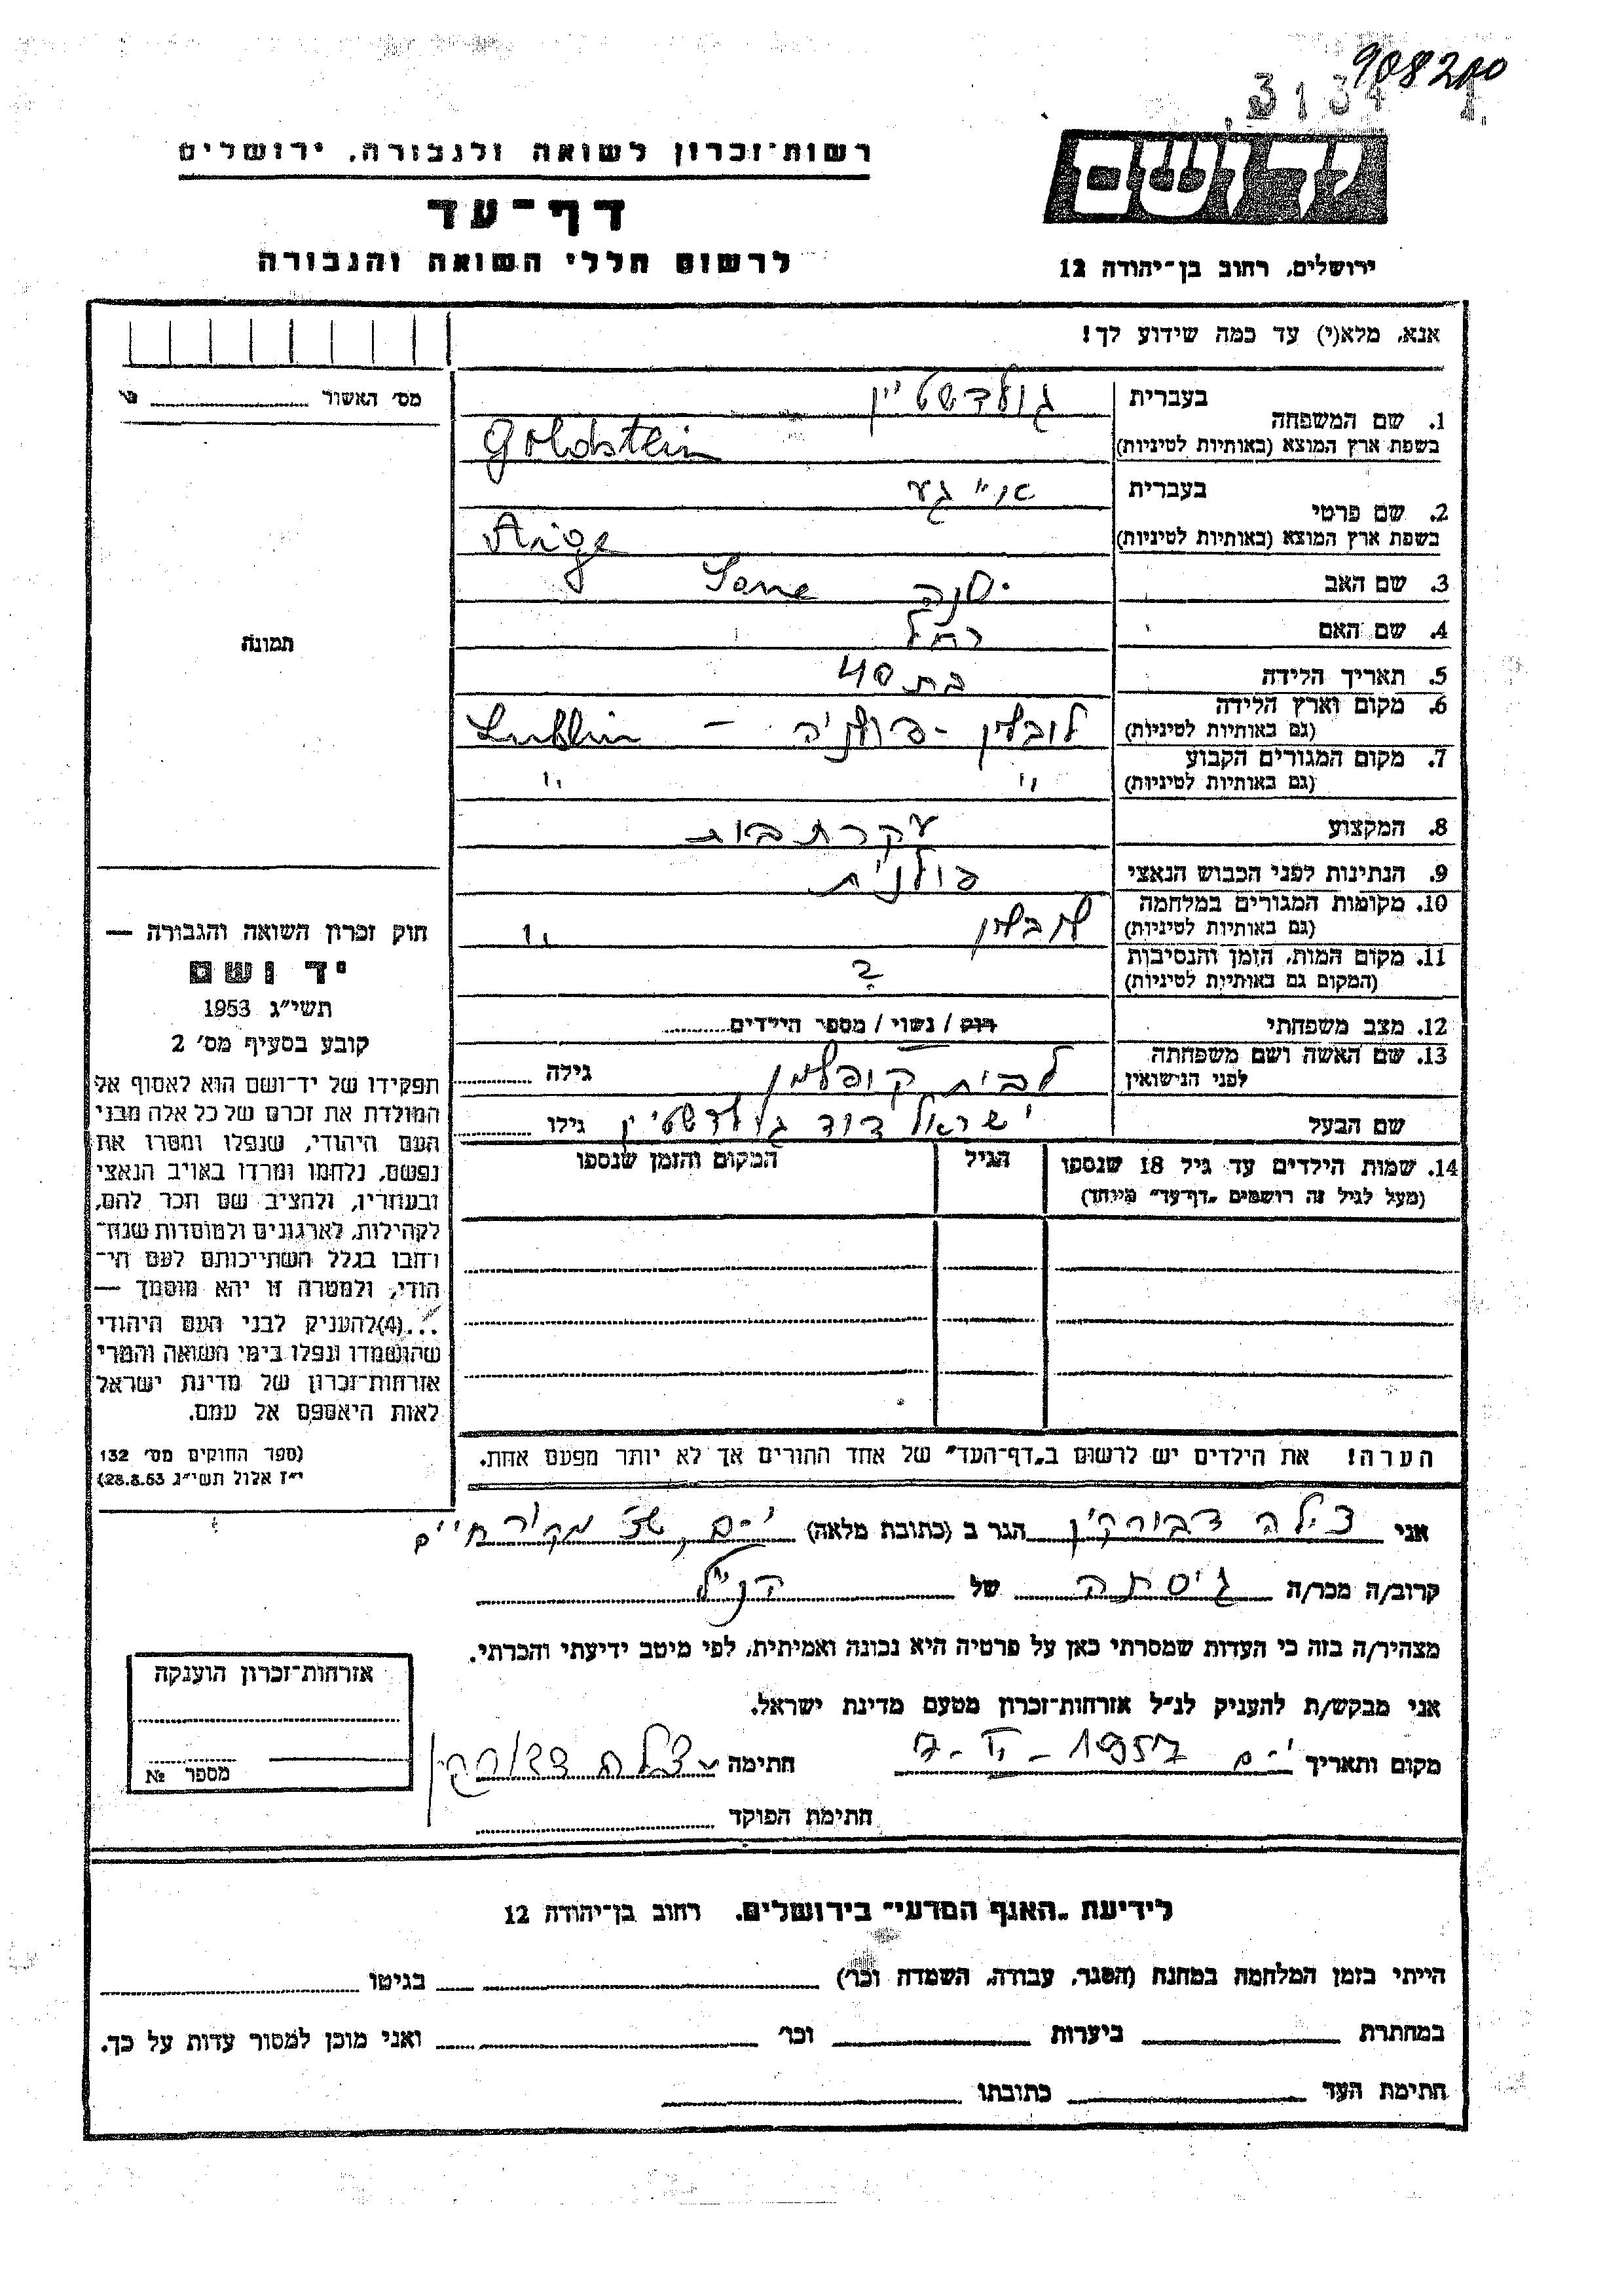 908200
3134 1.
יד ושם
רשות־זכרון לשואה ולגבורה, ירושלים
דף־עד
לרשום חללי השואה והגבורה
ירושלים, רחוב בן־יהודה 12
אנא, מלא(י) עד כמה שידוע לך!
מס׳ האשור
1. שם המשפחה
בעברית גולדשטיין
בשפת ארץ המוצא (באותיות לטיניות) Goldstein
2. שם פרטי
בעברית אייגע
בשפת ארץ המוצא (באותיות לטיניות) Aige
3. שם האב
4. שם האם רחל
5. תאריך הלידה בת 40
6. מקום וארץ הלידה לובלין - פולניה - Lublin
(גם באותיות לטיניות)
7. מקום המגורים הקבוע " "
(גם באותיות לטיניות)
8. המקצוע עקרת בית
9. הנתינות לפני הכבוש הנאצי פולנית
10. מקומות המגורים במלחמה לובלין "
(גם באותיות לטיניות)
11. מקום המות, הזמן והנסיבות ?
(המקום גם באותיות לטיניות)
12. מצב משפחתי רווק / נשוי / מספר הילדים
13. שם האשה ושם משפחתה לבית קופלמן גילה
לפני הנישואין
שם הבעל ישראל דוד גולדשטיין גילו
14. שמות הילדים עד גיל 18 שנספו הגיל המקום והזמן שנספו
(מעל לגיל זה רושמים „דף־עד" מיוחד)
הערה! את הילדים יש לרשום ב„דף־העד" של אחד ההורים אך לא יותר מפעם אחת.
תמונה
חוק זכרון השואה והגבורה —
יד ושם
תשי״ג 1953
קובע בסעיף מס׳ 2
תפקידו של יד־ושם הוא לאסוף אל
המולדת את זכרם של כל אלה מבני
העם היהודי, שנפלו ומסרו את
נפשם, נלחמו ומרדו באויב הנאצי
ובעוזריו, ולהציב שם וזכר להם,
לקהילות, לארגונים ולמוסדות שנח־
רבו בגלל השתייכותם לעם הי־
הודי, ולמטרה זו יהא מוסמך —
...(4) להעניק לבני העם היהודי
שהושמדו ונפלו בימי השואה והמרי
אזרחות־זכרון של מדינת ישראל
לאות היאספם אל עמם.
(ספר החוקים מס׳ 132
י״ז אלול תשי״ג 28.8.53)
אני צילה דבורקין הגר ב (כתובת מלאה) י-ם, שכ׳ מקור חיים
קרוב/ה מכר/ה גיסתה של הנ״ל
מצהיר/ה בזה כי העדות שמסרתי כאן על פרטיה היא נכונה ואמיתית, לפי מיטב ידיעתי והכרתי.
אני מבקש/ת להעניק לנ״ל אזרחות־זכרון מטעם מדינת ישראל.
מקום ותאריך י-ם 1957 - II - 7 חתימה צילה דבורקין
חתימת הפוקד
אזרחות־זכרון הוענקה
מספר №
לידיעת „האגף המדעי" בירושלים, רחוב בן־יהודה 12
הייתי בזמן המלחמה במחנה (הסגר, עבודה, השמדה וכו׳) בגיטו
במחתרת ביערות וכו׳ ואני מוכן למסור עדות על כך.
חתימת העד כתובתו